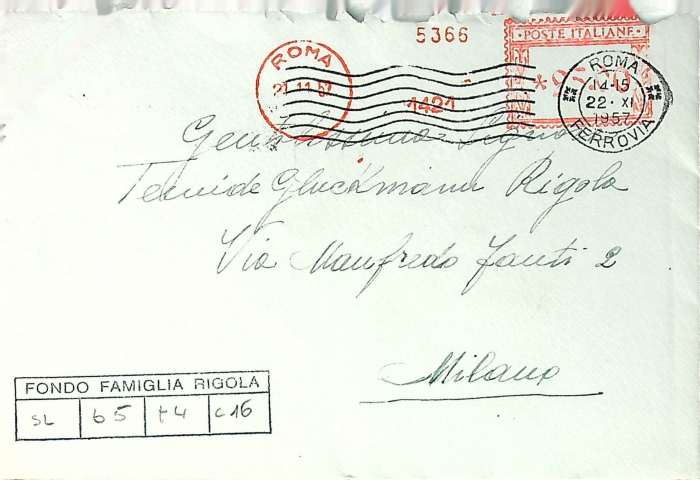 5366
POSTE ITALIANE
ROMA
1421
ROMA
14-15
22 · XI
1957
FERROVIA
Gentilissima Signora
Gluckmann Rigola
Via Manfredo Fanti 2
Milano
FONDO FAMIGLIA RIGOLA
SL b5 t4 c16